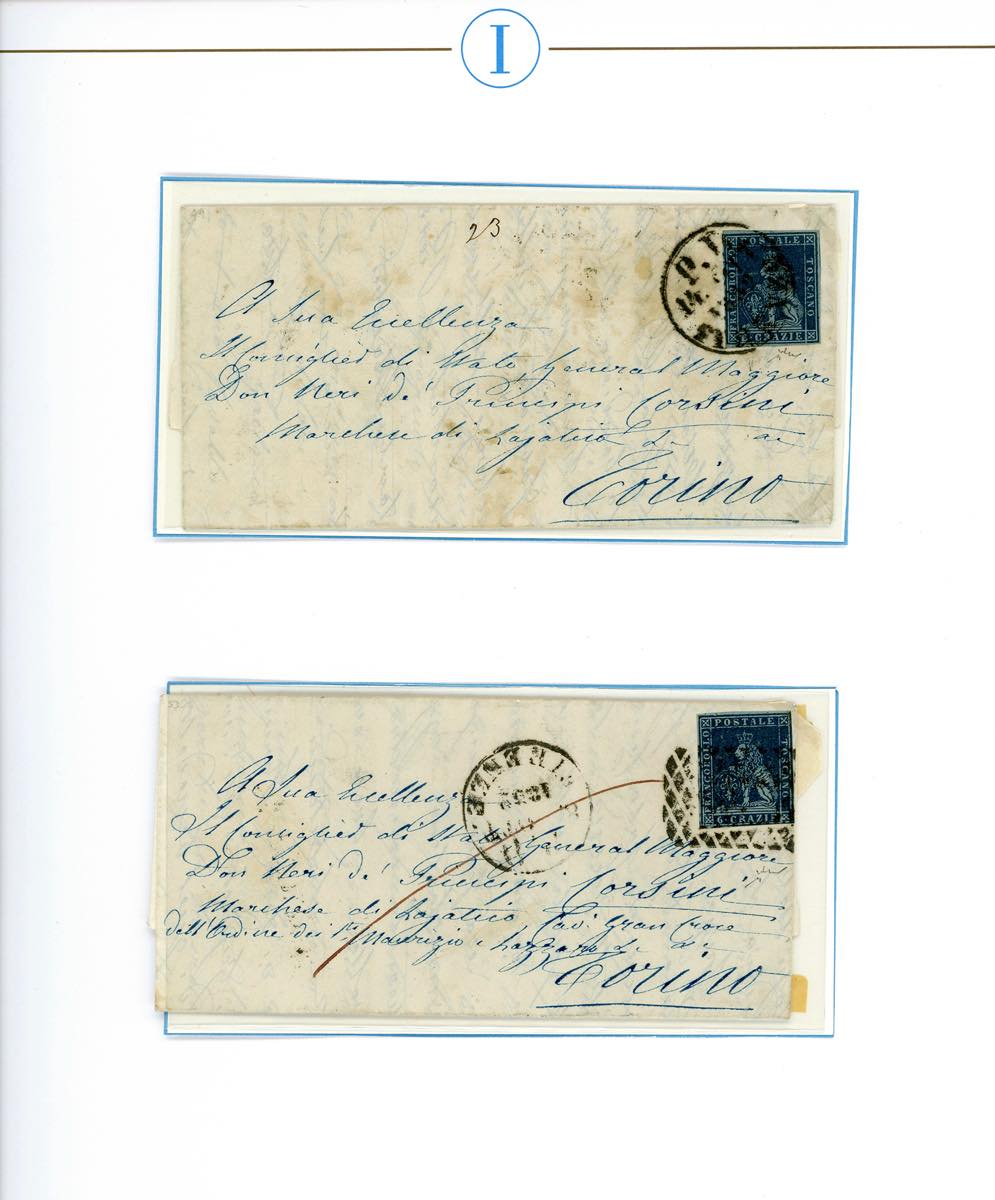 I
23
FRANCOBOLLO POSTALE TOSCANO
6·CRAZIE
P.
A Sua Eccellenza
Il Consiglier di Stato, General Maggiore
Don Neri de' Principi Corsini
Marchese di Lajatico
Torino
FRANCOBOLLO POSTALE TOSCANO
6·CRAZIE
FIRENZE
A Sua Eccellenz
Il Consiglier di General Maggiore
Don Neri de' Principi Corsini
Marchese di Lajatico Cav. Gran Croce
dell'Ordine dei Sti Maurizio e Lazzaro
Torino